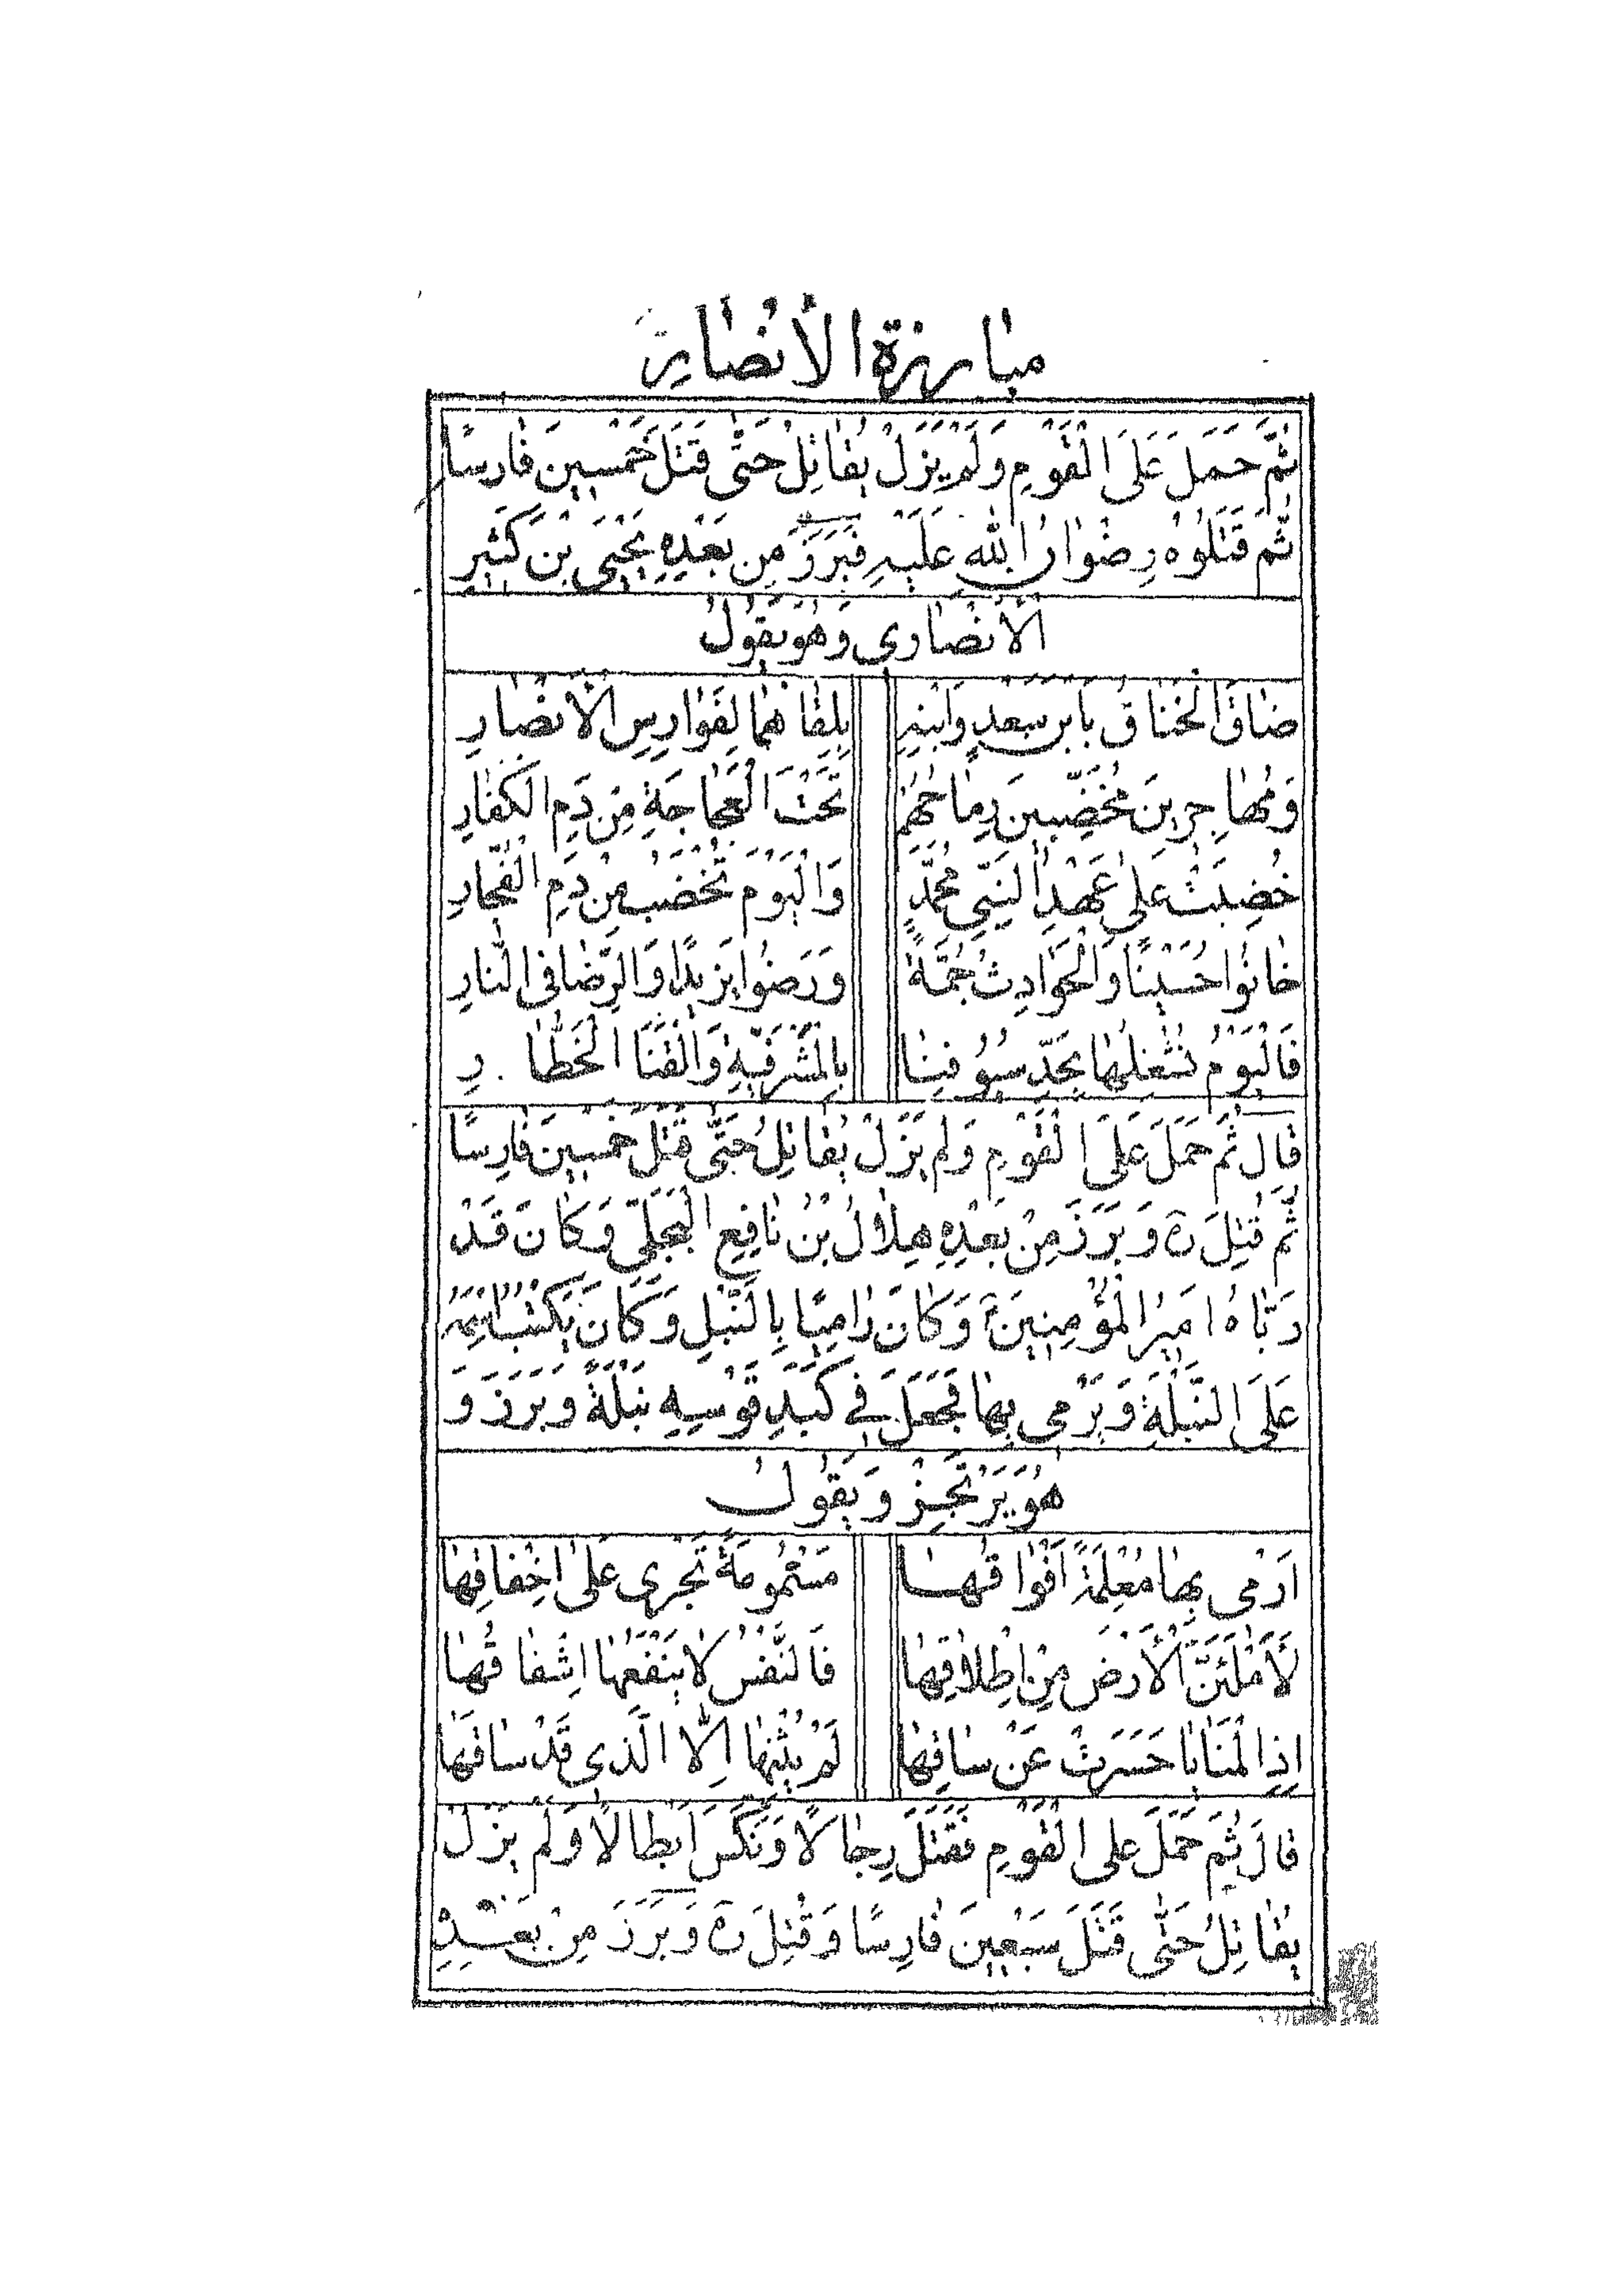 مبارزة الأنصار
ثُمَّ حَمَلَ عَلَى الْقَوْمِ وَلَمْ يَزَلْ يُقاتِلُ حَتّٰى قَتَلَ خَمْسينَ فارِسًا
ثُمَّ قَتَلُوهُ رِضْوانُ اللهِ عَلَيْهِ فَبَرَزَ مِن بَعْدِهِ يَحْيَى بْن كَثيرِ
الأَنْصاری وَهُوَ يَقُولُ
ضاقَ الْخناقُ بابن سَعدٍ وَابْنِهِ بِلِقاهُما لِفَوارِسِ الْأَنْصارِ
وَمُهاجِرينَ مُخَضِّبينَ رِماحَهُمْ تَحْتَ الْعَجاجَةِ مِن دَمِ الْكُفّارِ
خُضِبَتْ عَلى عَهْدِ النَّبِيِّ مُحَمَّدٍ وَالْيَوْمَ تُخْضَبُ مِنْ دَمِ الْفُجّارِ
خانُوا حُسَيْنًا وَالْحَوادِثُ جُمَّةٌ وَرَضُوا يَزيدًا وَالرِّضا فى النّارِ
فَالْيَوْمُ نُشْعِلُها بِحَدِّ سُيُوفِنا بِالْمَشْرَفِيَّةِ وَالْقَنَا الْخَطّارِ
قالَ ثُمَّ حَمَلَ عَلَى الْقَوْمِ وَلَم يَزَلْ يُقاتِلُ حَتّى قَتَلَ خَمسينَ فارِسًا
ثُمَّ قُتِلَ رَهَ وَبَرَزَ مِنْ بَعْدِهِ هِلالُ بْنُ نافِعِ الْبَجَلِیّ وَكانَ قَدْ
رَبّاهُ امَيرُ الْمُؤمِنينَ ع وَكانَ رامِيًا بِالنَّبْلِ وَكانَ يَكْتُبُ اسْمَهُ
عَلَى النَّبْلَةِ وَيَرْمى بِها فَجَعَلَ فِي كَبَدِ قَوْسِهِ نَبْلَةً وَبَرَزَ وَ
هُوَ يَرْتَجِزُ وَيَقُولُ
اَرْمى بِها مُعْلَمَةً اَفْواقُها مَسْمُومَةً تَجْرى عَلى اخْفافِها
لَأَمْلَئَنَّ الْأَرْضَ مِنْ اِطْلاقِها فَالنَّفْسُ لا يَنْفَعُها اِشْفاقُها
اِذِ الْمَنايا حَسَرَتْ عَنْ ساقِها لَمْ يُثْنِها اِلّا الَّذى قَدْ ساقَها
قالَ ثُمَّ حَمَلَ عَلى الْقَوْمِ فَقَتَلَ رِجالًا وَنَكَّسَ اَبْطالًا وَلَمْ يَزَلْ
يُقاتِلُ حَتّٰى قَتَلَ سَبْعينَ فارِسًا وَقُتِلَ رَهَ وَبَرَزَ مِنْ بَعْدِهِ